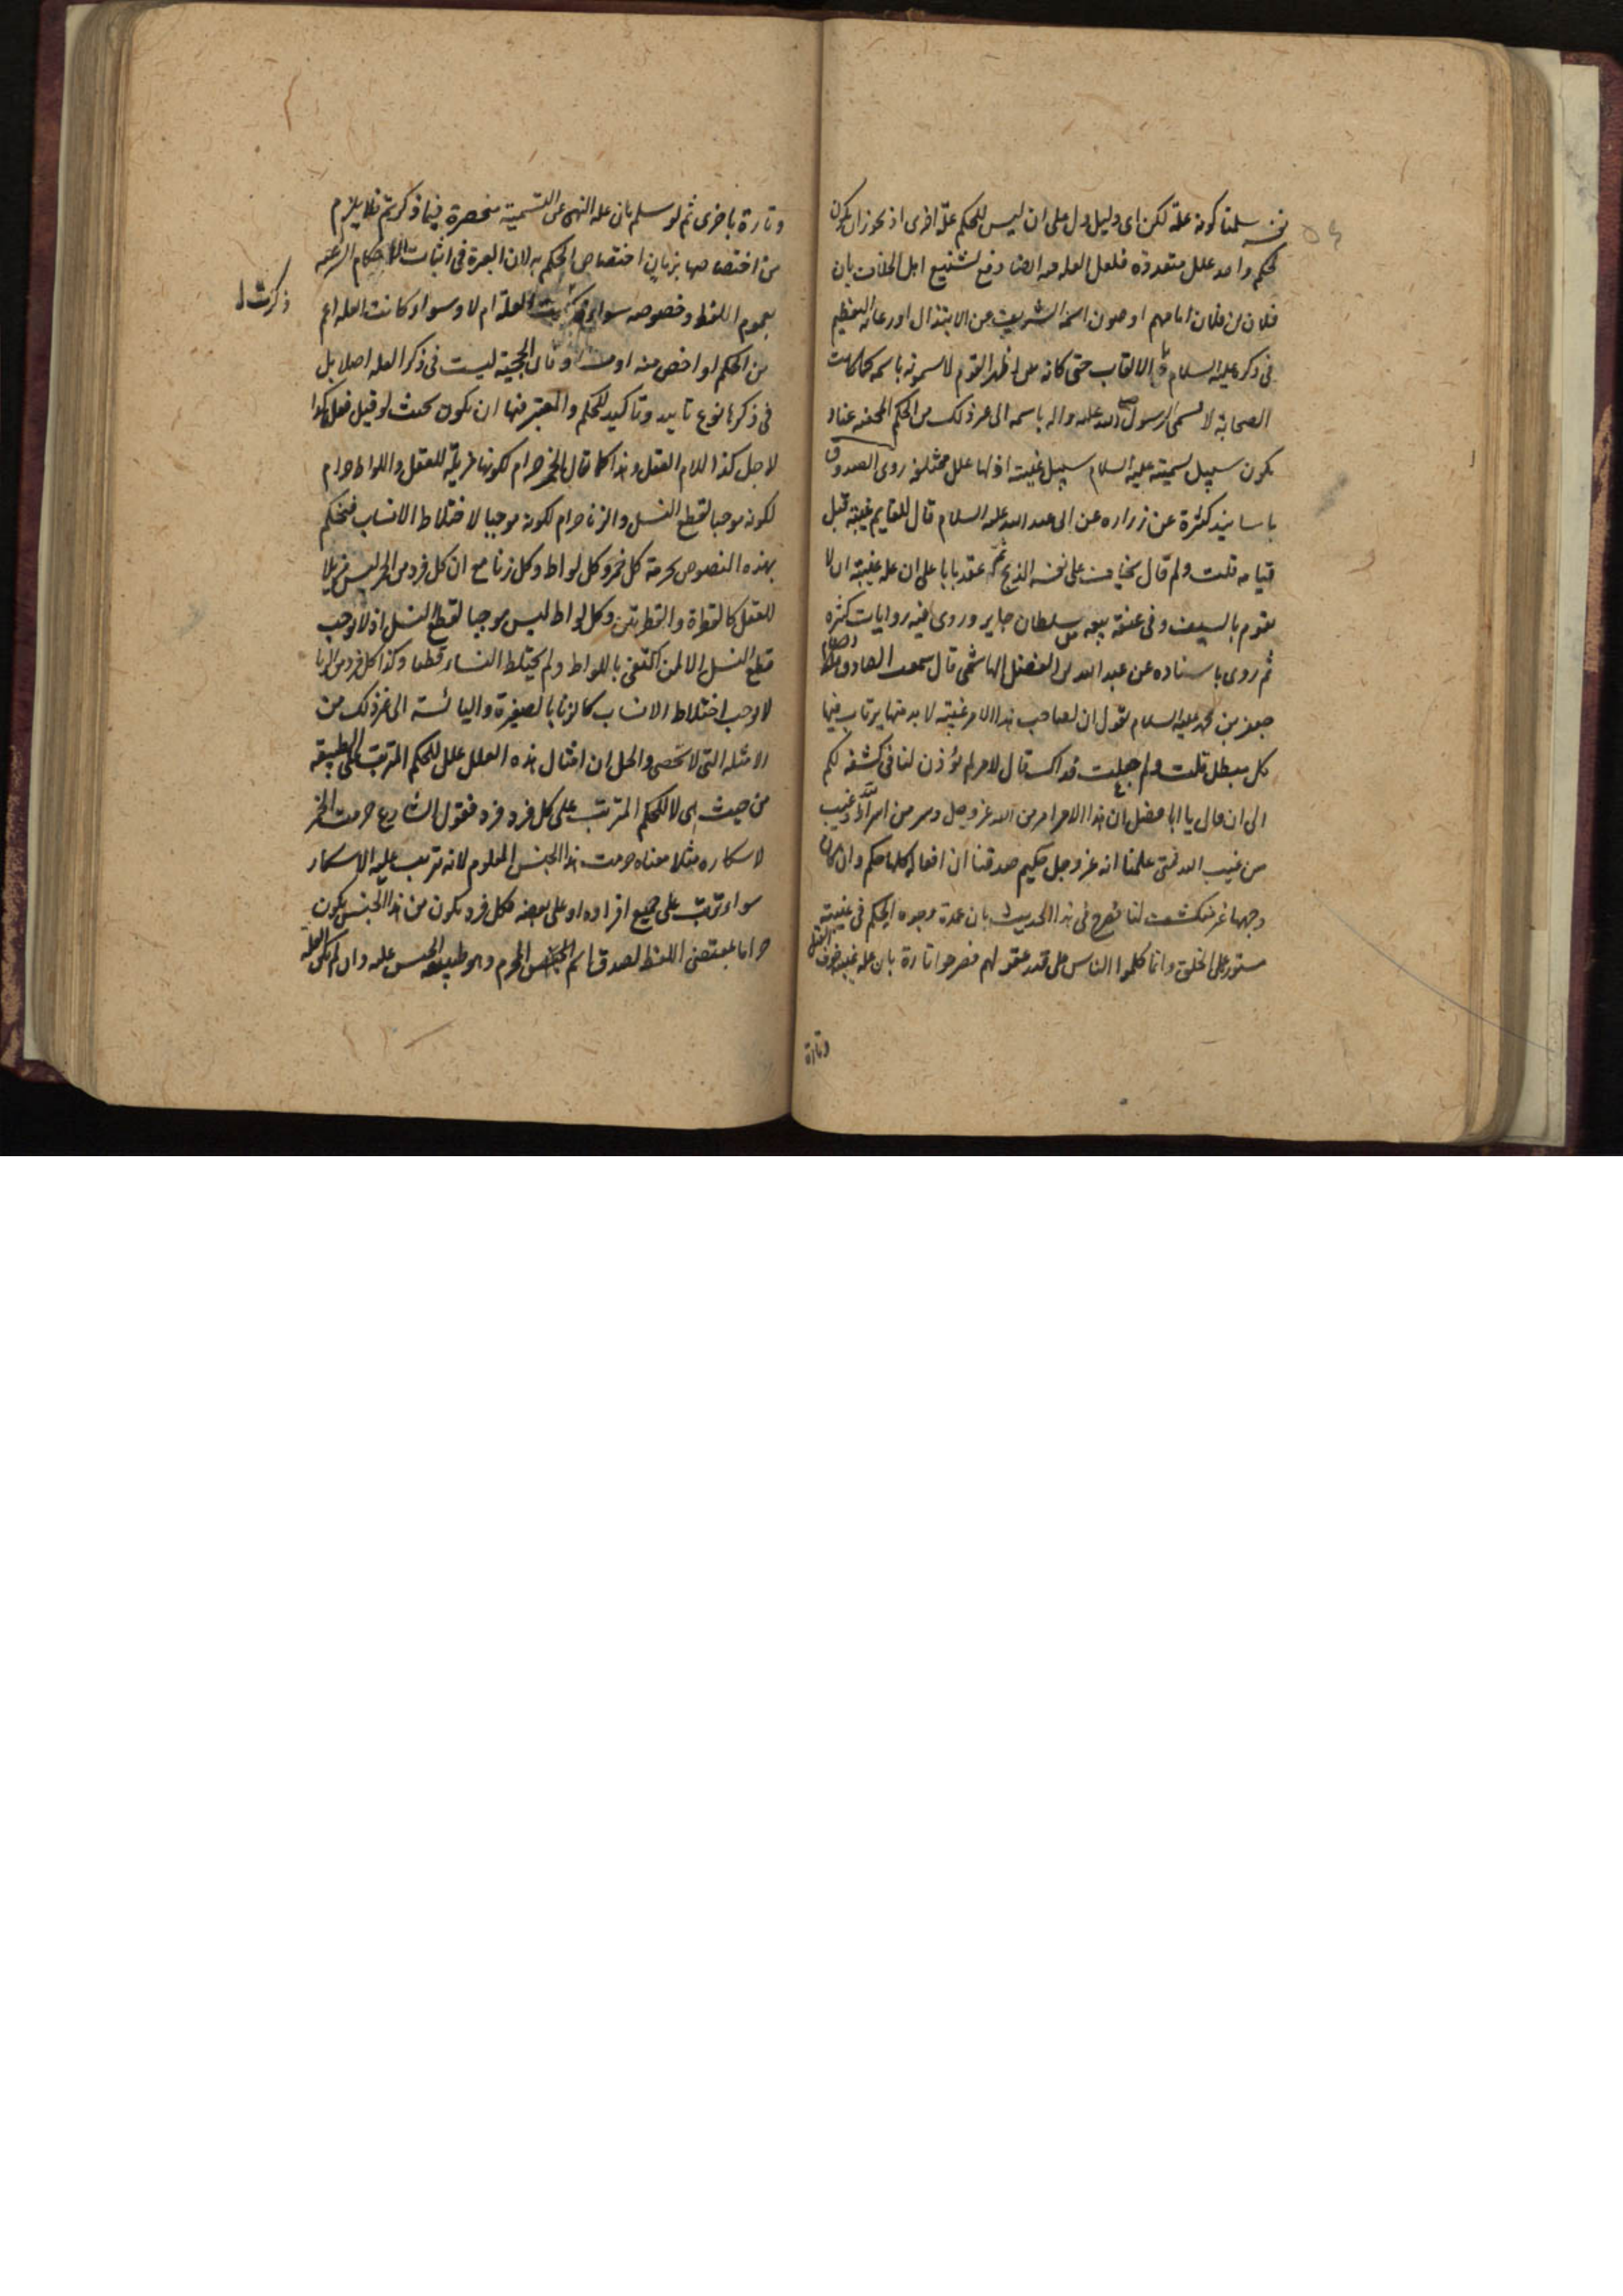 سلمنا كونه علة لكن اى دليل دل على ان ليس للحكم علة اخرى اذ يجوز ان يكون
لحكم واحد علل متعددة فلعل العلة فيه ايضا دفع تشنيع اهل الخلاف بان
فلان بن فلان امامهم او صون اسمه الشريف عن الابتذال او رعاية التعظيم
فى ذكره عليه السلام الالقاب حتى كانه بين اظهر القوم لا يسمونه باسمه كما كانت
الصحابة لا تسمى الرسول صلى الله عليه واله باسمه الى غير ذلك من الحكم المخفية عنا و
يكون سبيل تسميته عليه السلام سبيل غيبته اذ لها علل مختلفة روى الصدوق
باسانيد كثيرة عن زراره عن ابى عبد الله عليه السلام قال للقايم غيبة قبل
قيامه قلت ولم قال يخاف على نفسه الذبح ثم عقد بابا على ان علة غيبته ان لا
يقوم بالسيف وفى عنقه بيعة من سلطان جاير وروى فيه روايات كثيرة
ثم روى باسناده عن عبد الله بن الفضل الهاشمى قال سمعت الصادق
جعفر بن محمد عليه السلام يقول ان لصاحب هذا الامر غيبة لا بد منها يرتاب فيها
كل مبطل قلت ولم جعلت فداك قال لامر لم يؤذن لنا فى كشفه لكم
الى ان قال يا ابا الفضل ان هذا الامر امر من الله عز وجل وسر من اسرار الله وغيب
من غيب الله فمتى علمنا انه عز وجل حكيم صدقنا ان افعاله كلها حكم وان كان
وجهها غير منكشف لنا فصرح فى هذا الحديث بان عمدة وجوه الحكم فى غيبته
مستور على الخلق وانما كلموا الناس على قدر عقولهم فصرحوا تارة بان علة غيبته خوف القتل
وتارة
وتارة باخرى ثم لو سلم بان علة النهى عن التسمية منحصرة فيما ذكرتم فلا يلزم
من اختصاصها بزمان اختصاص الحكم به لان العبرة فى اثبات الاحكام الشرعية
بعموم اللفظ وخصوصه سواء العلة ام لا وسواء كانت العلة اعم
ذكرت
من الحكم او اخص منه او والحجية ليست فى ذكر العلة اصلا بل
فى ذكرها نوع تاييد وتاكيد للحكم والمعتبر منها ان يكون بحيث لو قيل فعل هكذا
لاجل كذا لا يلام العقل وهذا كما قال الخمر حرام لكونها مزيلة للعقل واللواط حرام
لكونه موجبا لقطع النسل والزنا حرام لكونه موجبا لاختلاط الانساب فيحكم
بهذه النصوص بحرمة كل خمر وكل لواط وكل زنا مع ان كل فرد من الخمر ليس مزيلا
للعقل كالقطرة والقطرتين وكل لواط ليس موجبا لقطع النسل اذ لا يوجب
قطع النسل الا لمن اكتفى باللواط ولم يختلط النساء قطعا وكذا كل فرد من الزنا
لا يوجب اختلاط الانساب كالزنا بالصغيرة واليائسة الى غير ذلك من
الامثلة التى لا تحصى والحل ان امثال هذه العلل علل للحكم المترتب على الطبيعة
من حيث هى لا للحكم المترتب على كل فرد فرد فقول الشارع حرمت الخمر
لاسكاره مثلا معناه حرمت هذا الجنس المعلوم لانه ترتب عليه الاسكار
سواء ترتب على جميع افراده او على بعضه فكل فرد يكون من هذا الجنس يكون
حراما بمقتضى اللفظ لصدق اسم الجنس المحرم وهو طبيعة الجنس عليه وان لم يكن العلة